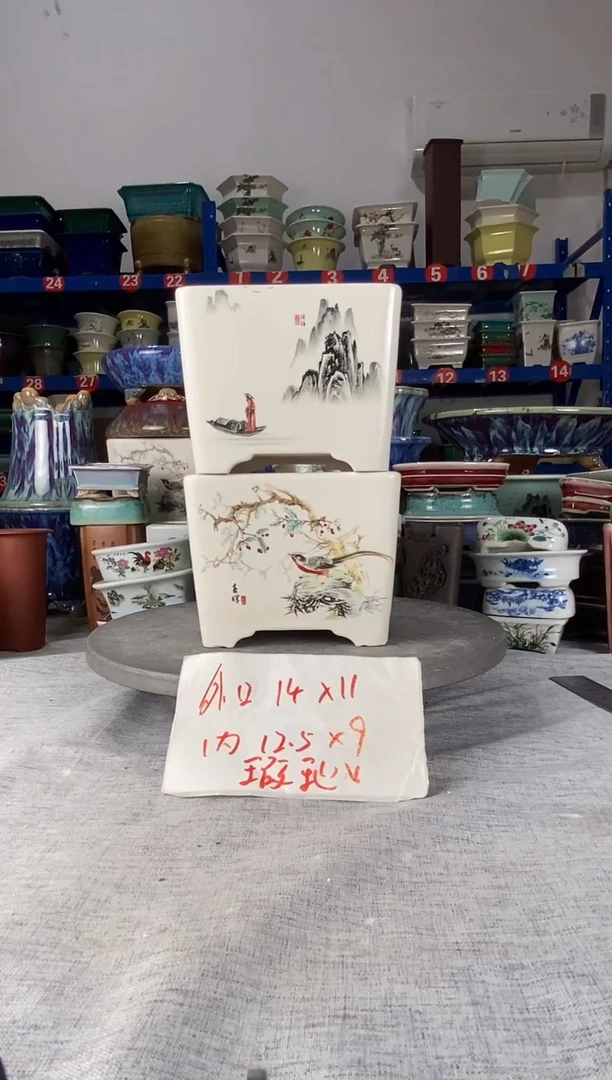 24
23
22
1
2
3
4
5
6
7
28
27
12
13
14
外口 14 x 11
内 12.5 x 9